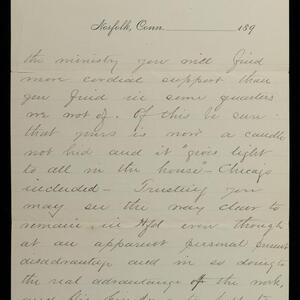 Norfolk, Conn. 189
the ministry you will find
more cordial support than
you find in some quarters
we not of. Of this be sure
that yours is now a candle
not hid and it "gives light
to all in the house" - Chicago
included - Trusting you
may see the way clear to
remain in Htfd even though
at an apparent personal present
disadvantage and in so doing to
the real advantage of the work,